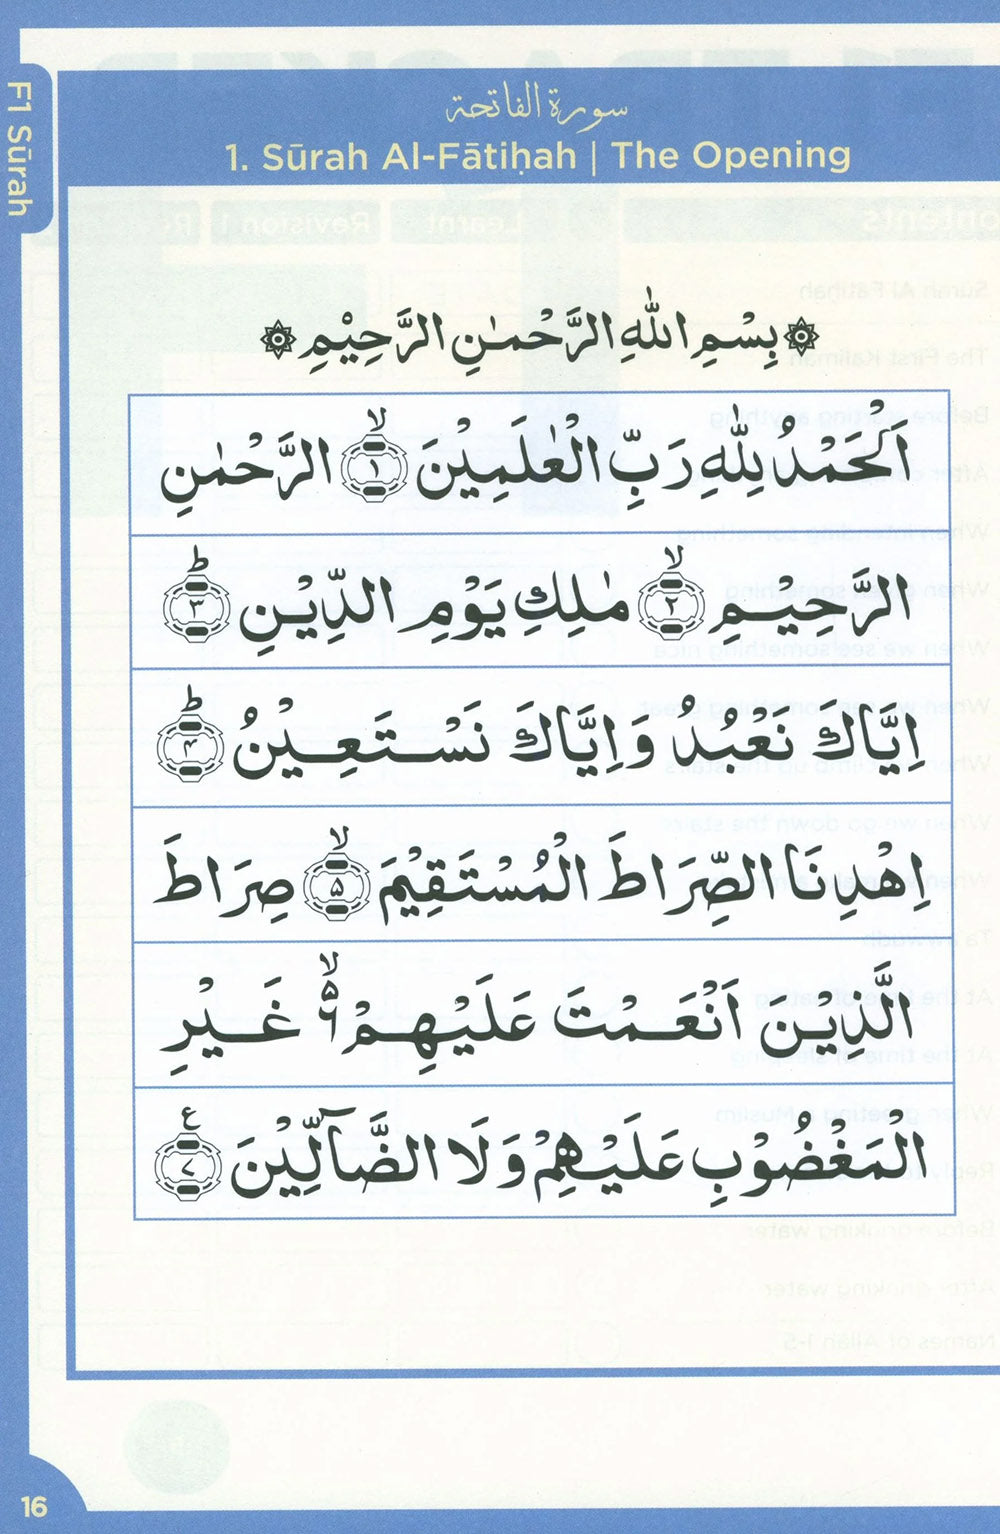 F1 Sūrah
سورة الفاتحة
1. Sūrah Al-Fātiḥah | The Opening
۞ بِسْمِ اللّٰهِ الرَّحْمٰنِ الرَّحِيْمِ ۞
اَلْحَمْدُ لِلّٰهِ رَبِّ الْعٰلَمِيْنَ ۙ﴿۱﴾ الرَّحْمٰنِ
الرَّحِيْمِ ۙ﴿۲﴾ مٰلِكِ يَوْمِ الدِّيْنِ ؕ﴿۳﴾
اِيَّاكَ نَعْبُدُ وَاِيَّاكَ نَسْتَعِيْنُ ؕ﴿۴﴾
اِهْدِنَا الصِّرَاطَ الْمُسْتَقِيْمَ ۙ﴿۵﴾ صِرَاطَ
الَّذِيْنَ اَنْعَمْتَ عَلَيْهِمْ ۙ۹ غَيْرِ
الْمَغْضُوْبِ عَلَيْهِمْ وَلَا الضَّآلِّيْنَ ﴿۷﴾ ع
16